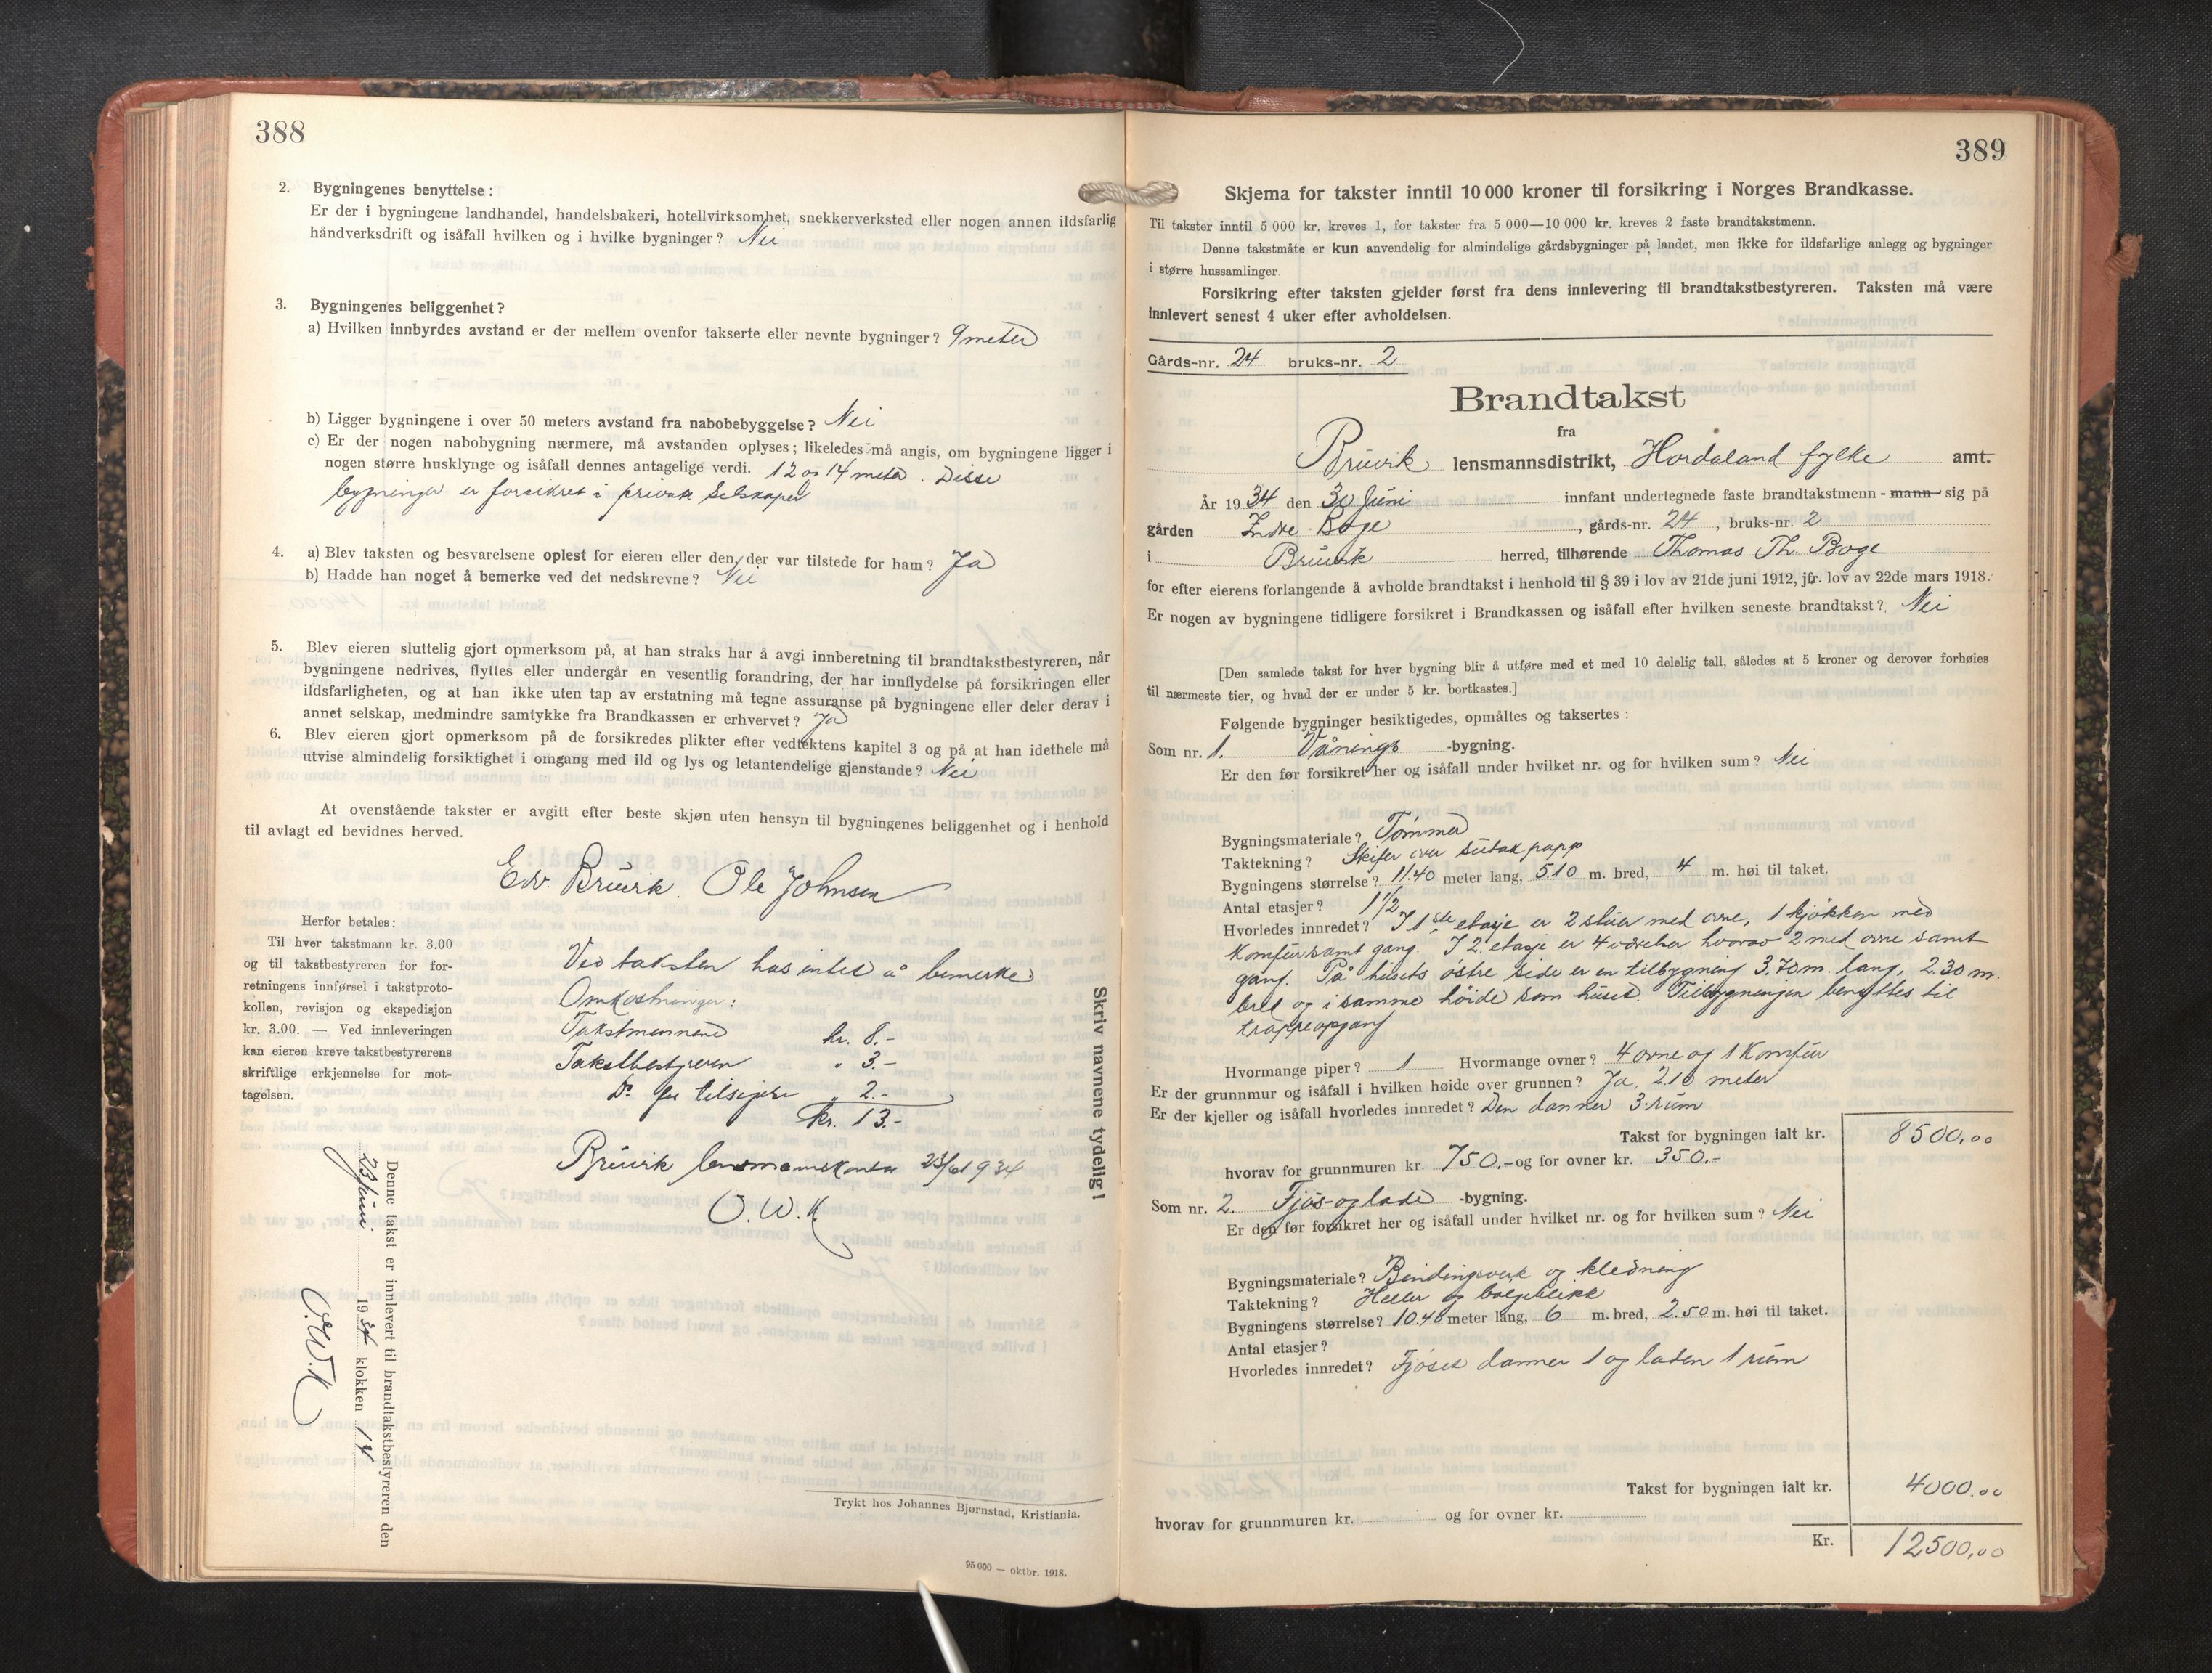 388
2. Bygningenes benyttelse:
Er der i bygningene landhandel, handelsbakeri, hotellvirksomhet, snekkerverksted eller nogen annen ildsfarlig
håndverksdrift og isåfall hvilken og i hvilke bygninger? Nei
3. Bygningenes beliggenhet?
a) Hvilken innbyrdes avstand er der mellem ovenfor takserte eller nevnte bygninger? 9 meter
b) Ligger bygningene i over 50 meters avstand fra nabobebyggelse? Nei
c) Er der nogen nabobygning nærmere, må avstanden oplyses; likeledes må angis, om bygningene ligger i
nogen større husklynge og isåfall dennes antagelige verdi. 12 og 14 meter. Disse
bygninger er forsikret i private Selskaper
4. a) Blev taksten og besvarelsene oplest for eieren eller den, der var tilstede for ham? Ja
b) Hadde han noget å bemerke ved det nedskrevne? Nei
5. Blev eieren sluttelig gjort opmerksom på, at han straks har å avgi innberetning til brandtakstbestyreren, når
bygningene nedrives, flyttes eller undergår en vesentlig forandring, der har innflydelse på forsikringen eller
ildsfarligheten, og at han ikke uten tap av erstatning må tegne assuranse på bygningene eller deler derav i
annet selskap, medmindre samtykke fra Brandkassen er erhvervet? Ja
6. Blev eieren gjort opmerksom på de forsikredes plikter efter vedtektens kapitel 3 og på at han idethele må
utvise almindelig forsiktighet i omgang med ild og lys og letantendelige gjenstande? Nei
At ovenstående takster er avgitt efter beste skjøn uten hensyn til bygningenes beliggenhet og i henhold
til avlagt ed bevidnes herved.
Edv. Bruvik. Ole Johnsen
Herfor betales:
Til hver takstmann kr. 3.00
og til takstbestyreren for for-
retningens innførsel i takstproto-
kollen, revisjon og ekspedisjon
kr. 3.00. — Ved innleveringen
kan eieren kreve takstbestyrerens
skriftlige erkjennelse for mot-
tagelsen.
Ved taksten has intet å bemerke
Omkostninger:
Takstmennene kr. 8.-
Takstbestyreren " 3.-
Do for tilsigere " 2.-
Kr. 13.-
Bruvik lensmannskontor 23/6 1934
O.W.K
Skriv navnene tydelig!
Denne takst er innlevert til brandtakstbestyreren den
23 juni 1934 klokken 14
O.W.K
Trykt hos Johannes Bjørnstad, Kristiania.
95 000 — oktbr. 1918.
389
Skjema for takster inntil 10 000 kroner til forsikring i Norges Brandkasse.
Til takster inntil 5 000 kr. kreves 1, for takster fra 5 000—10 000 kr. kreves 2 faste brandtakstmenn.
Denne takstmåte er kun anvendelig for almindelige gårdsbygninger på landet, men ikke for ildsfarlige anlegg og bygninger
i større hussamlinger.
Forsikring efter taksten gjelder først fra dens innlevering til brandtakstbestyreren. Taksten må være
innlevert senest 4 uker efter avholdelsen.
Gårds-nr. 24 bruks-nr. 2
Brandtakst
fra
Bruvik lensmannsdistrikt, Hordaland fylke amt.
År 1934 den 30 Juni innfant undertegnede faste brandtakstmenn - mann - sig på
gården Indre Boge, gårds-nr. 24, bruks-nr. 2
i Bruvik herred, tilhørende Thomas Th. Boge
for efter eierens forlangende å avholde brandtakst i henhold til § 39 i lov av 21de juni 1912, jfr. lov av 22de mars 1918.
Er nogen av bygningene tidligere forsikret i Brandkassen og isåfall efter hvilken seneste brandtakst? Nei
[Den samlede takst for hver bygning blir å utføre med et med 10 delelig tall, således at 5 kroner og derover forhøies
til nærmeste tier, og hvad der er under 5 kr. bortkastes.]
Følgende bygninger besiktigedes, opmåltes og taksertes:
Som nr. 1. Vånings -bygning.
Er den før forsikret her og isåfall under hvilket nr. og for hvilken sum? Nei
Bygningsmateriale? Tømmer
Taktekning? Skifer over sutak papp
Bygningens størrelse? 11.40 meter lang, 5.10 m. bred, 4 m. høi til taket.
Antal etasjer? 1 1/2
Hvorledes innredet? I 1ste etasje er 2 stuer med ovne, 1 kjøkken med
Komfur samt gang. I 2. etasje er 4 værelser hvorav 2 med ovne samt
gang. På husets østre side er en tilbygning 3.70 m. lang, 2.30 m.
bred og i samme høide som huset. Tilbygningen benyttes til
trappeopgang
Hvormange piper? 1 Hvormange ovner? 4 ovne og 1 Komfur
Er der grunnmur og isåfall i hvilken høide over grunnen? Ja, 2.10 meter
Er der kjeller og isåfall hvorledes innredet? Den danner 3 rum
Takst for bygningen ialt kr. 8500,00
hvorav for grunnmuren kr. 750.- og for ovner kr. 350.-
Som nr. 2. Fjøs- og lade -bygning.
Er den før forsikret her og isåfall under hvilket nr. og for hvilken sum? Nei
Bygningsmateriale? Bindingsverk og kledning
Taktekning? Heller og bølgeblikk
Bygningens størrelse? 10.40 meter lang, 6 m. bred, 2.50 m. høi til taket.
Antal etasjer?
Hvorledes innredet? Fjøset danner 1 og laden 1 rum
Takst for bygningen ialt kr. 4000.00
hvorav for grunnmuren kr. og for ovner kr.
Kr. 12500,00